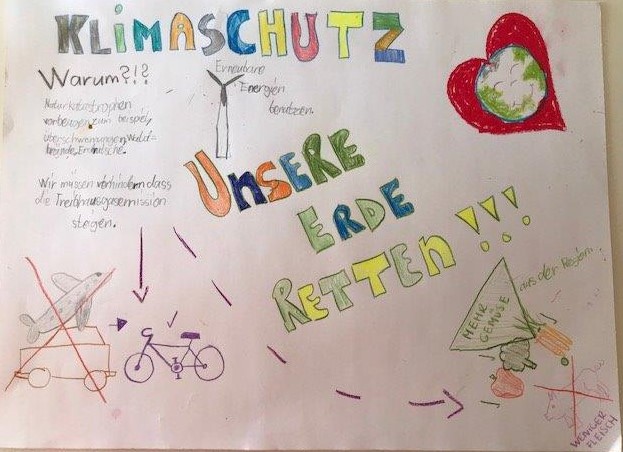 KLIMASCHUTZ
Warum?!?
Naturkatastrophen
vorbeugen zum beispiel,
überschwemmungen, Wald-
brände, Erdrutsche.
Wir müssen verhindern dass
die Treibhausgasemission
steigen.
Erneubare
Energien
benutzen.
UNSERE
ERDE
RETTEN !!!
MEHR
GEMÜSE
aus der Region
WENIGER
FLEISCH